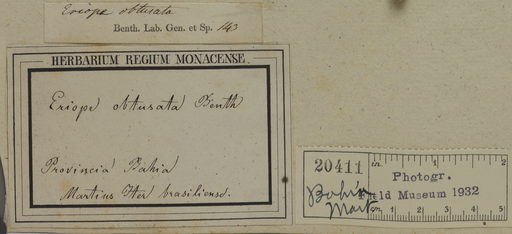 Eriope obtusata
Benth. Lab. Gen. et Sp. 143
HERBARIUM REGIUM MONACENSE.
Eriope obtusata Benth
Provincia Bahia
Martius Iter brasiliense.
20411
Photogr.
Field Museum 1932
Bahia
Mart
in. 1 2
m 1 2 3 4 5